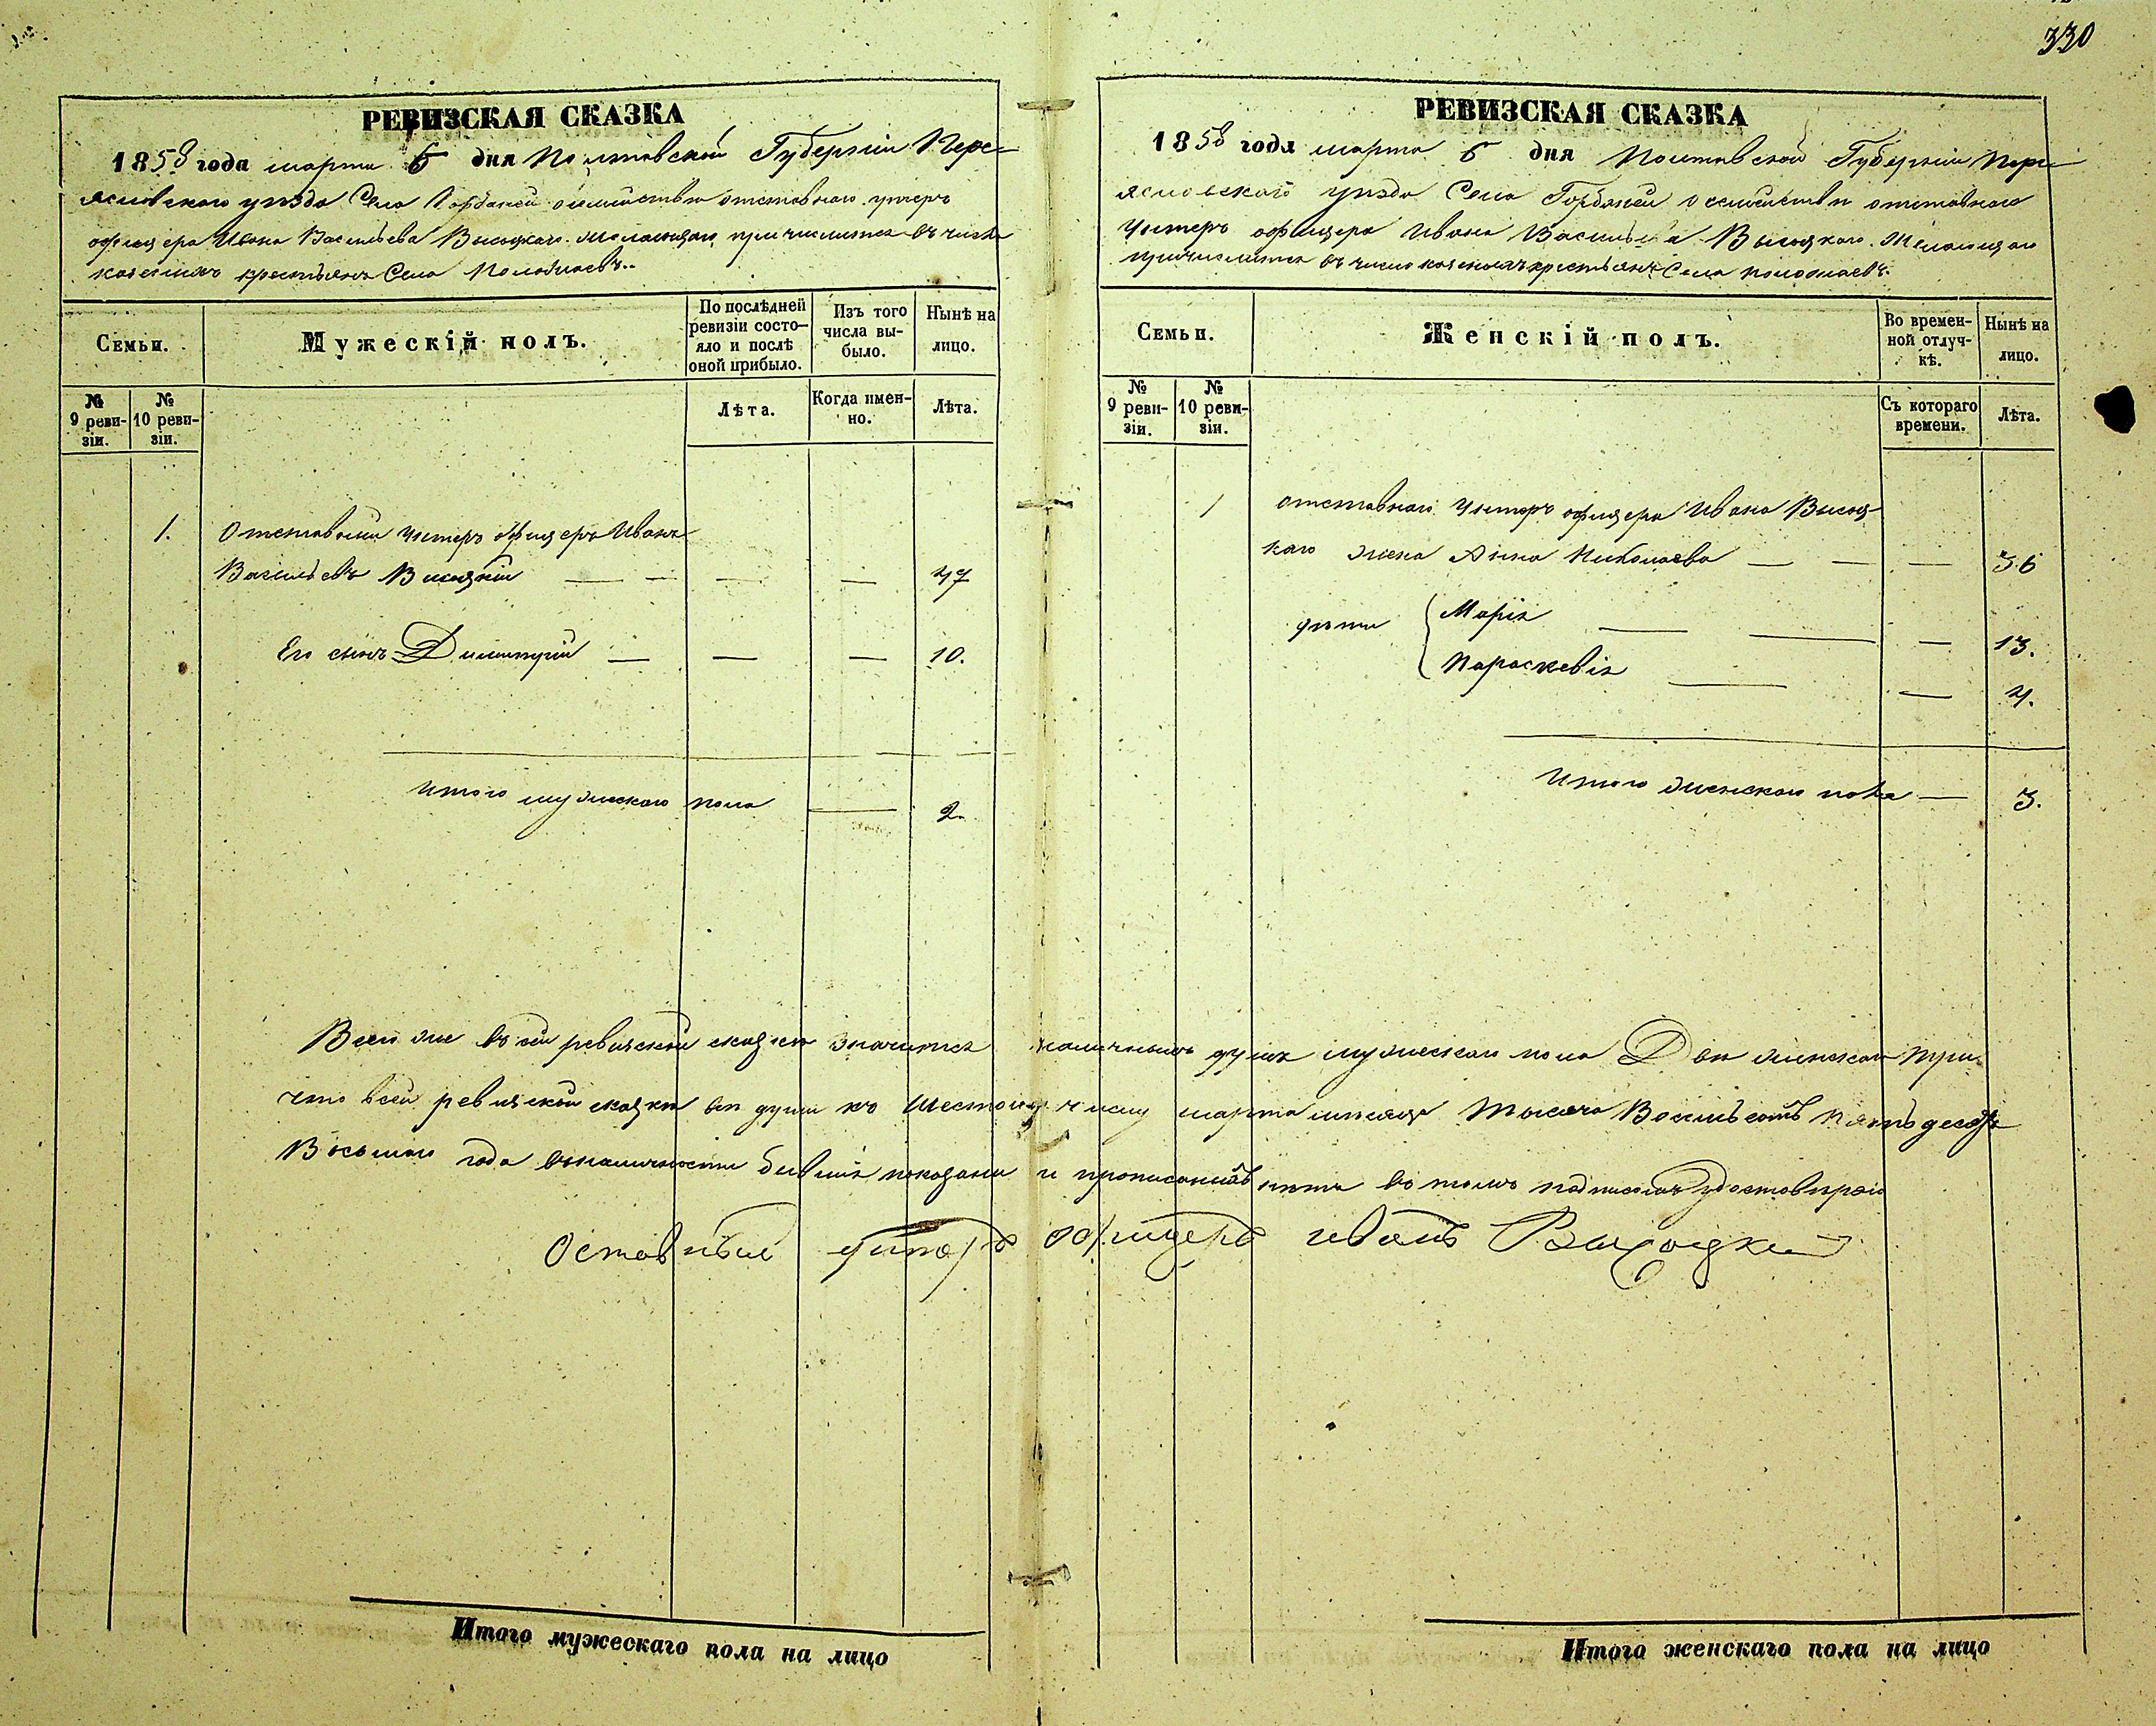 330
РЕВИЗСКАЯ СКАЗКА
1858 года марта 6 дня Полтавской Губерніи Пере-
яславскаго уѣзда Села Горбаней о семействѣ отставнаго унтеръ
офицера Ивана Васильева Высоцкаго желающаго причислится въ число
казенныхъ крестьянъ Села
Семьи.
Мужескій полъ.
По послѣдней ревизіи состо-яло и послѣ оной прибыло.
Изъ того числа вы-было.
Нынѣ на лицо.
№ 9 реви-зіи.
№ 10 реви-зіи.
Лѣта.
Когда имен-но.
Лѣта.
1. Отставный унтеръ офицеръ Иванъ
Васильевъ Высоцкій — — — — 47
Его сынъ Димитрій — — — 10.
Итого мужескаго пола — 2.
Итого мужескаго пола на лицо
РЕВИЗСКАЯ СКАЗКА
1858 года марта 6 дня Полтавской Губерніи Пере-
яславскаго уѣзда Села Горбаней о семействѣ отставнаго
Унтеръ офицера Ивана Васильева Высоцкаго Желающаго
причислится въ число казенныхъ крестьянъ Села
Семьи.
Женскій полъ.
Во времен-ной отлуч-кѣ.
Нынѣ на лицо.
№ 9 реви-зіи.
№ 10 реви-зіи.
Съ котораго времени.
Лѣта.
1 Отставнаго Унтеръ офицера Ивана Высоц-
каго жена Анна Николаева — — — 36
дѣти Марія — — — 13.
Параскевія — — 4.
Итого женскаго пола — 3.
Всего же въ сей ревизской сказкѣ значится наличныхъ душъ мужескаго пола Двѣ женскаго три.
что в сей ревизской сказкѣ всѣ души къ Шестому числу марта мѣсяца Тысяча Восемьсотъ пятьдесятъ
Восьмаго года въ наличности бывшія показаны и прописныхъ нѣтъ въ томъ подписомъ удостовѣряю
Оставный унтеръ офицеръ иванъ Высоцкий
Итого женскаго пола на лицо